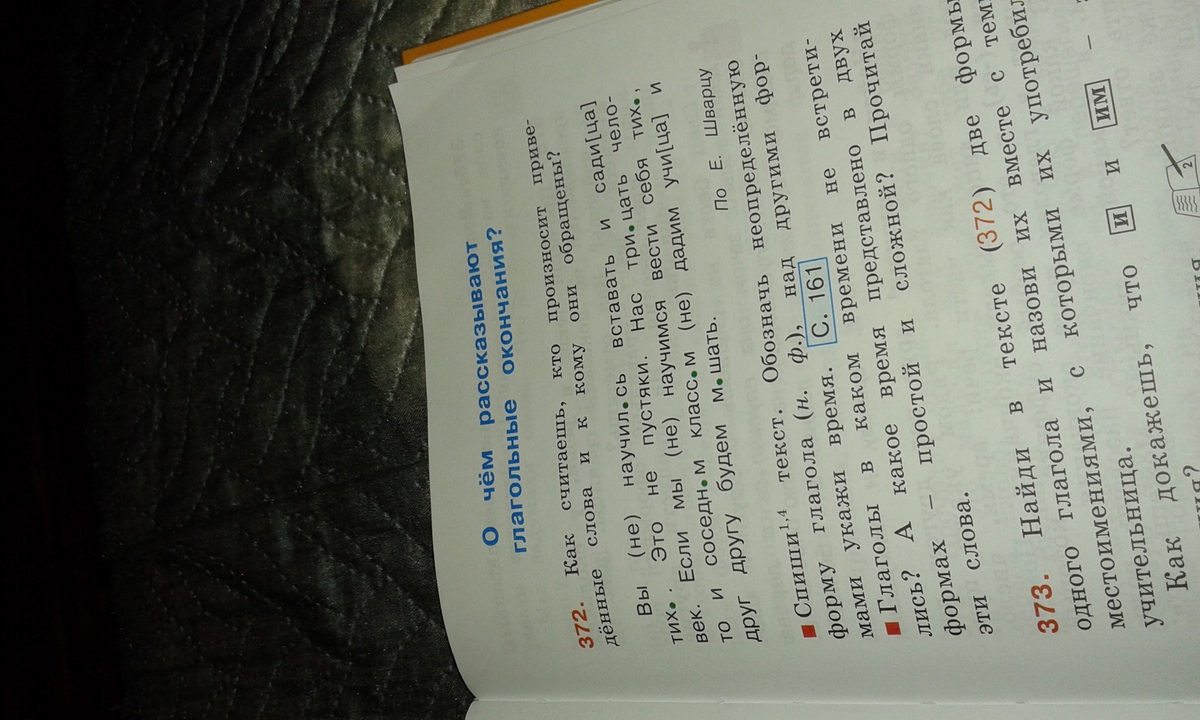 О чём рассказывают
глагольные окончания?
372. Как считаешь, кто произносит приве-
дённые слова и к кому они обращены?
Вы (не) научил•сь вставать и сади[ца]
тих•. Это не пустяки. Нас три•цать чело-
век. Если мы (не) научимся вести себя тих•,
то и соседн•м класс•м (не) дадим учи[ца] и
друг другу будем м•шать.
По Е. Шварцу
Спиши1,4 текст. Обозначь неопределённую
форму глагола (н. ф.), над другими фор-
мами укажи время. С. 161
Глаголы в каком времени не встрети-
лись? А какое время представлено в двух
формах – простой и сложной? Прочитай
эти слова.
373. Найди в тексте (372) две формы
одного глагола и назови их вместе с
местоимениями, с которыми их
учительница.
Как докажешь, что и и им –
2